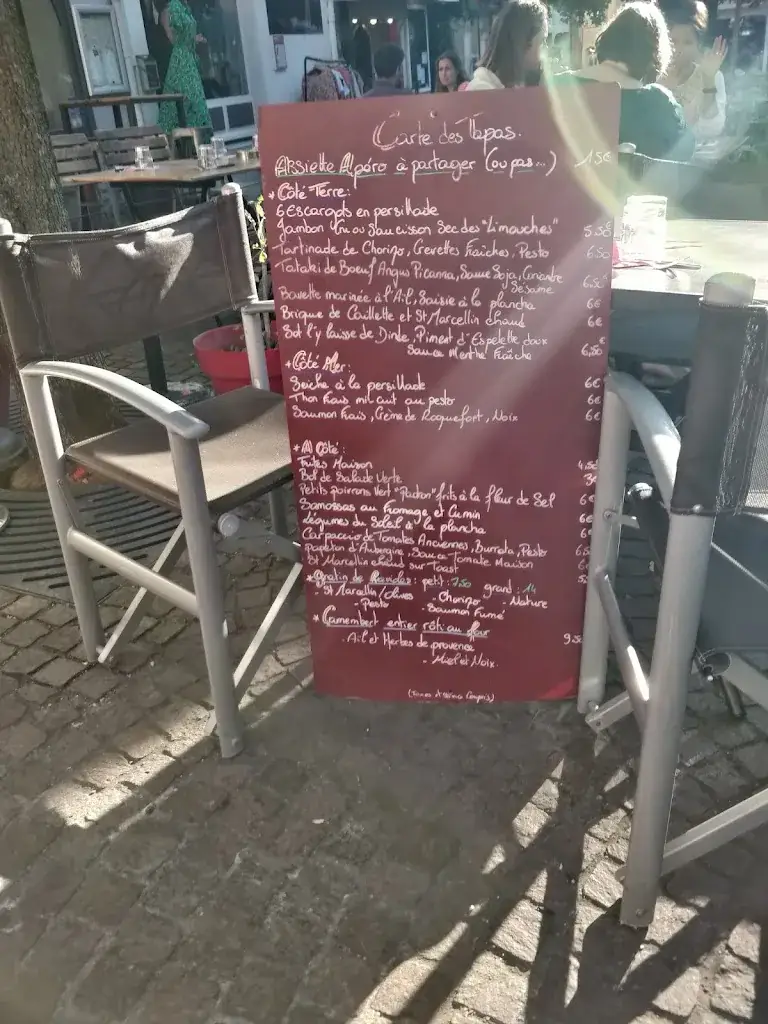 Carte des Tapas.
Assiette Apéro à partager (ou pas...) 15€
* Côté Terre:
6 Escargots en persillade
Jambon Cru ou Saucisson Sec des "Limouches" 5.50€
Tartinade de Chorizo, Crevettes Fraîches, Pesto 6.50
Tataki de Boeuf Angus Picanna, Sauce Soja, Coriandre
Sésame 6.50€
Bavette marinée à l'Ail, Saisie à la plancha 6€
Brique de Caillette et St Marcellin chaud 6€
Sot l'y laisse de Dinde, Piment d'Espelette doux
Sauce Menthe Fraîche 6,50€
* Côté Mer:
Seiche à la persillade 6€
Thon Frais mi cuit au pesto 6€
Saumon Frais, Crème de Roquefort, Noix 6€
* A Côté:
Frites Maison 4.50€
Bol de Salade Verte 3€
Petits poivrons Vert "Padron" frits à la fleur de Sel 6€
Samossas au Fromage et Cumin 6€
Légumes du Soleil à la plancha 6€
Carpaccio de Tomates Anciennes, Burrata, Pesto
papeton d'Aubergine, Sauce Tomate Maison
St Marcellin chaud sur Toast
* Gratin de Ravioles: petit: 7,50 grand: 14
- St Marcellin/Olives - Chorizo - Nature
- Pesto - Saumon Fumé
* Camembert entier rôti au four 9.50
- Ail et Herbes de provence
- Miel et Noix